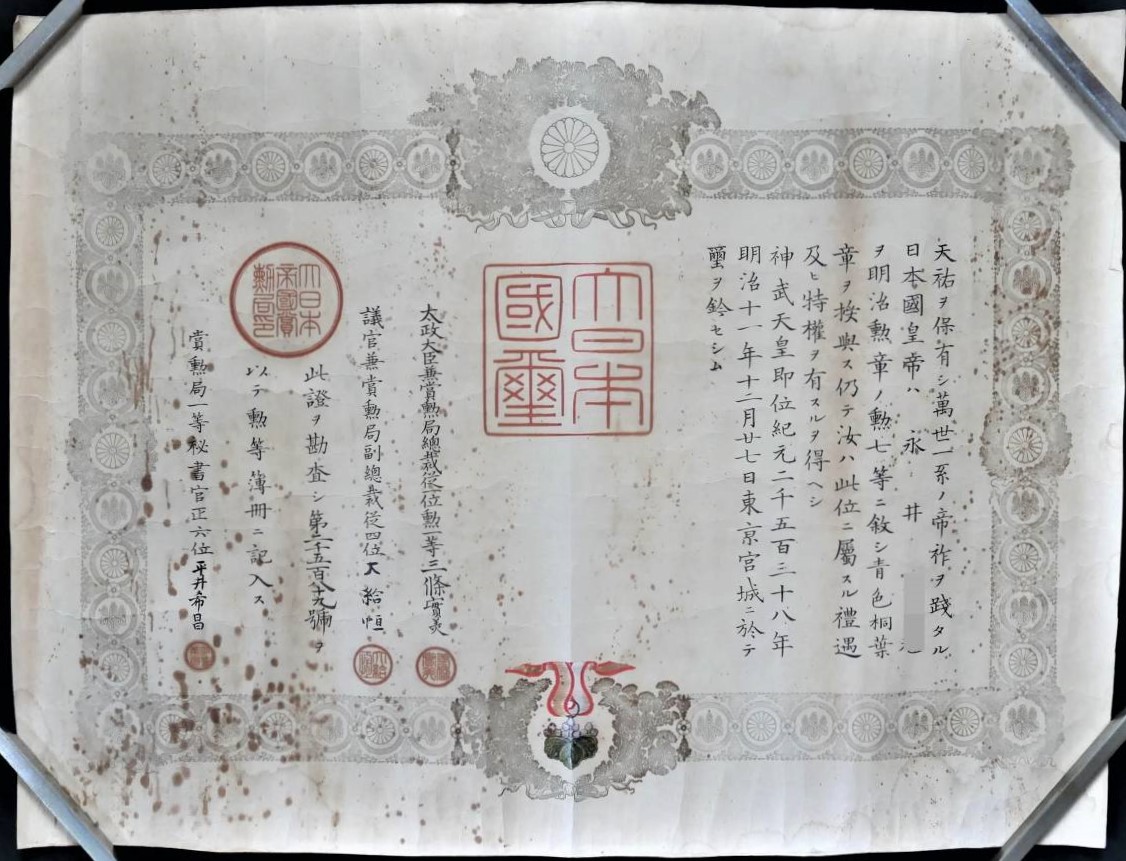 天祐ヲ保有シ萬世一系ノ帝祚ヲ踐タル
日本國皇帝ハ永井
ヲ明治勲章ノ勲七等ニ敘シ青色桐葉
章ヲ按與ス仍テ汝ハ此位ニ屬スル禮遇
及ヒ特權ヲ有スルヲ得ヘシ
神武天皇即位紀元二千五百三十八年
明治十一年十二月廿七日東京宮城ニ於テ
璽ヲ鈐セシム
大日本
國璽
太政大臣兼賞勲局總裁從一位勲一等三條實美
議官兼賞勲局副總裁從四位大給恒
此證ヲ勘査シ第二千五百八十九號ヲ
以テ勲等簿冊ニ記入ス
大日本
帝國賞
勲局印
賞勲局一等秘書官正六位平井希昌